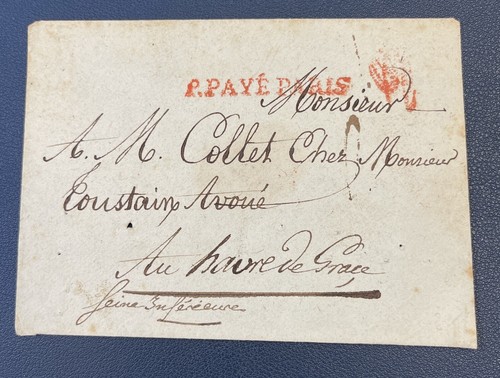 P.PAYÉ PARIS
Monsieur
A. M. Collet Chez Monsieur
Toustain Avoué
Au havre de Grace
Seine Inférieure